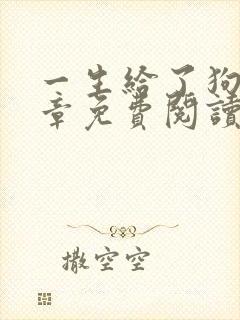 一生給了狗
章免費閱讀
撒空空